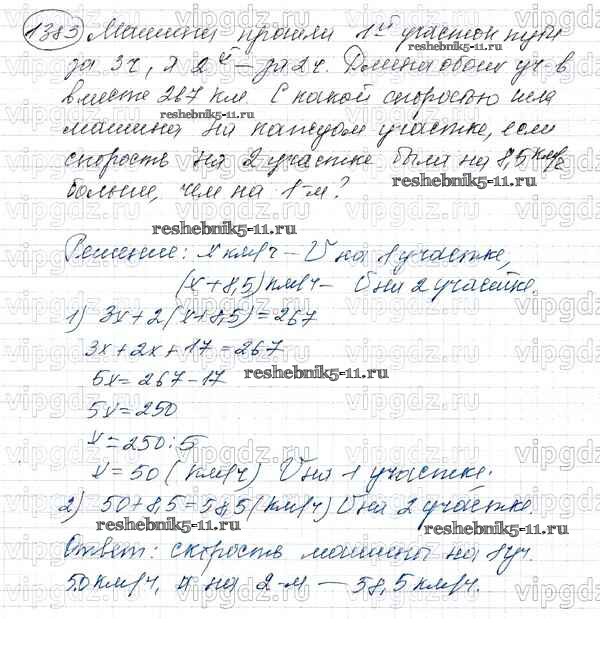 1383 Машина прошла 1ый участок пути
за 3ч, а 2й — за 2ч. Длина обоих уч-в
вместе 267 км. С какой скоростью шла
машина на каждом участке, если
скорость на 2 участке была на 8,5 км/ч
больше, чем на 1-м?
Решение: x км/ч — V на 1 участке,
(x+8,5) км/ч — V на 2 участке.
1) 3x+2(x+8,5)=267
3x+2x+17=267
5x=267-17
5x=250
x=250:5
x=50 (км/ч) V на 1 участке.
2) 50+8,5=58,5 (км/ч) V на 2 участке.
Ответ: скорость машины на 1 уч.
50 км/ч, а на 2-м — 58,5 км/ч.
reshebnik5-11.ru
reshebnik5-11.ru
reshebnik5-11.ru
reshebnik5-11.ru
reshebnik5-11.ru
reshebnik5-11.ru
reshebnik5-11.ru
vipgdz.ru